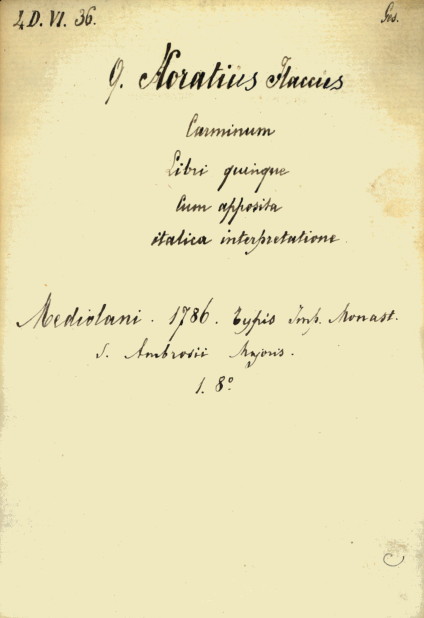 4 D. VI. 36.
Q. Horatius Flaccus
Carminum
Libri quinque
Cum apposita
italica interpretatione
Mediolani. 1786. Typis Imp. Monast.
S. Ambrosii Majoris.
1. 8°